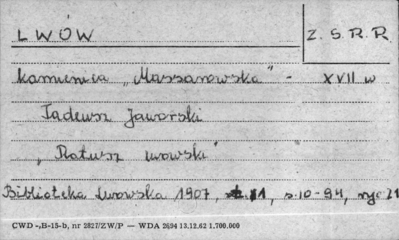 LWÓW
Z. S. R. R.
kamienica „Massarowska" - XVII w
Tadeusz Jaworski
„Ratusz lwowski"
Biblioteka Lwowska 1907, t. 1, s. 10-94, ryc 21
CWD - „B-15-b, nr 2827/ZW/P — WDA 2694 13.12.62 1.700.000